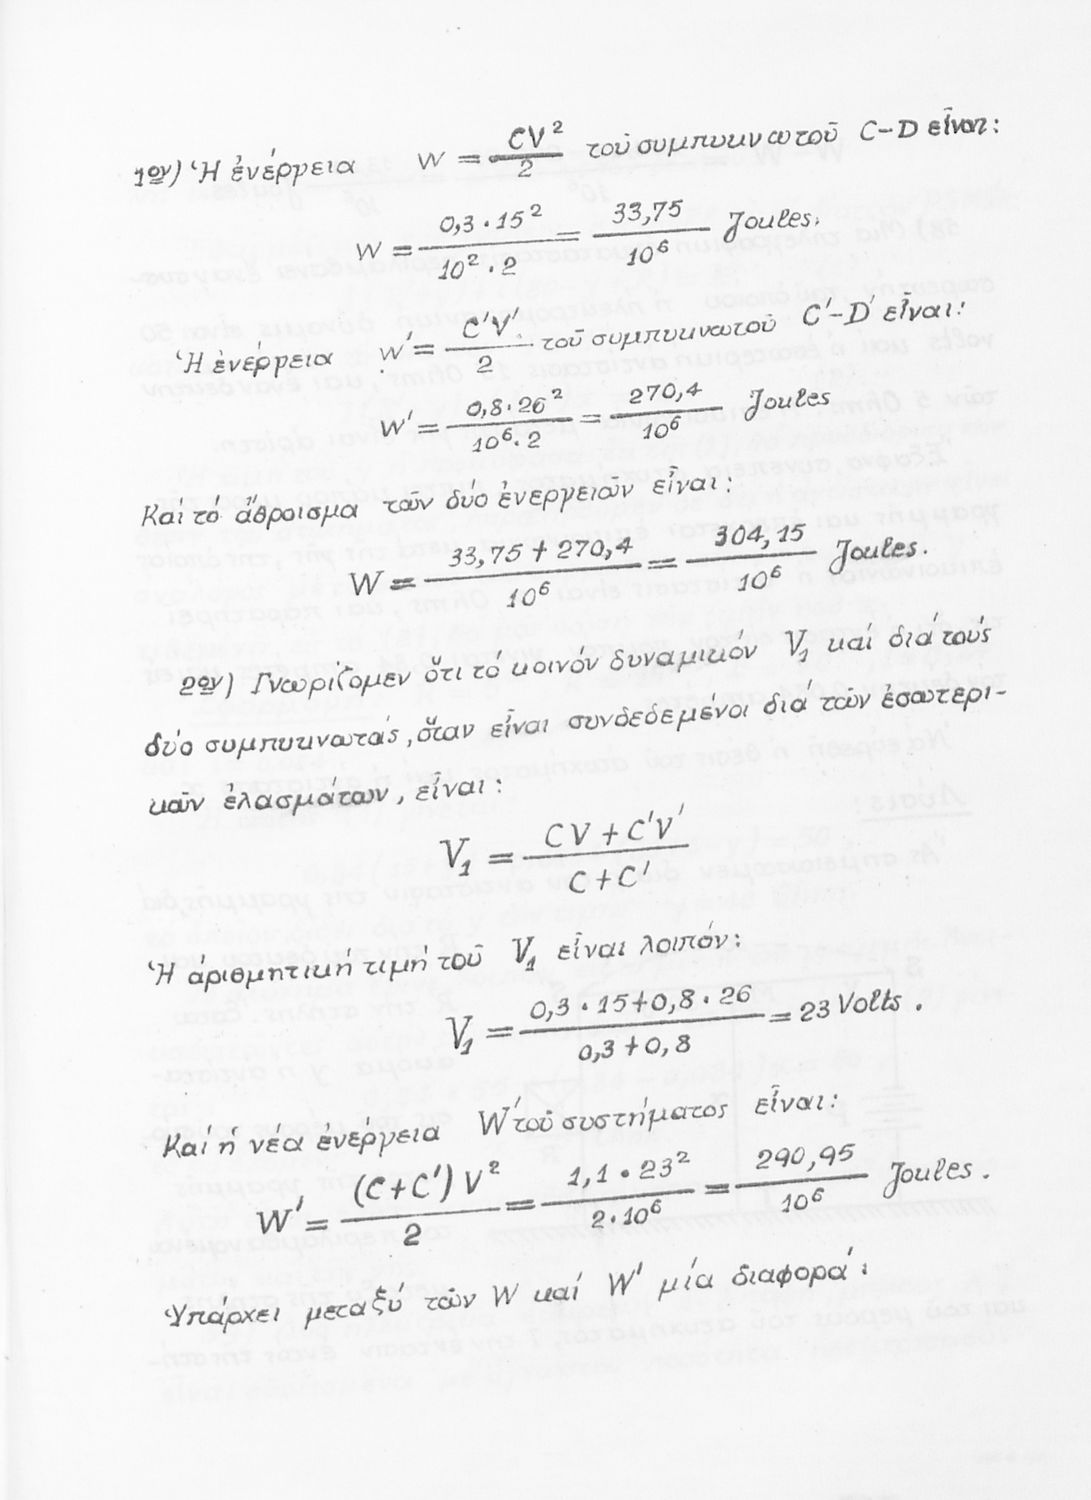 1ον) Ἡ ἐνέργεια W = CV²/2 τοῦ συμπυκνωτοῦ C-D εἶναι:
W = 0,3·15²/10²·2 = 33,75/10⁶ Joules.
Ἡ ἐνέργεια W' = C'V'/2 τοῦ συμπυκνωτοῦ C'-D' εἶναι:
W' = 0,8·26²/10⁶·2 = 270,4/10⁶ Joules
Καί τό ἄθροισμα τῶν δύο ἐνεργειῶν εἶναι:
W = 33,75 + 270,4/10⁶ = 304,15/10⁶ Joules.
2ον) Γνωρίζομεν ὅτι τό κοινόν δυναμικόν V₁ καί διά τούς
δύο συμπυκνωτάς, ὅταν εἶναι συνδεδεμένοι διά τῶν ἐσωτερι-
κῶν ἐλασμάτων, εἶναι:
V₁ = CV + C'V'/C + C'
Ἡ ἀριθμητική τιμή τοῦ V₁ εἶναι λοιπόν:
V₁ = 0,3·15+0,8·26/0,3+0,8 = 23 Volts.
Καί ἡ νέα ἐνέργεια W' τοῦ συστήματος εἶναι:
W' = (C+C')V²/2 = 1,1·23²/2·10⁶ = 290,95/10⁶ Joules.
Ὑπάρχει μεταξύ τῶν W καί W' μία διαφορά: